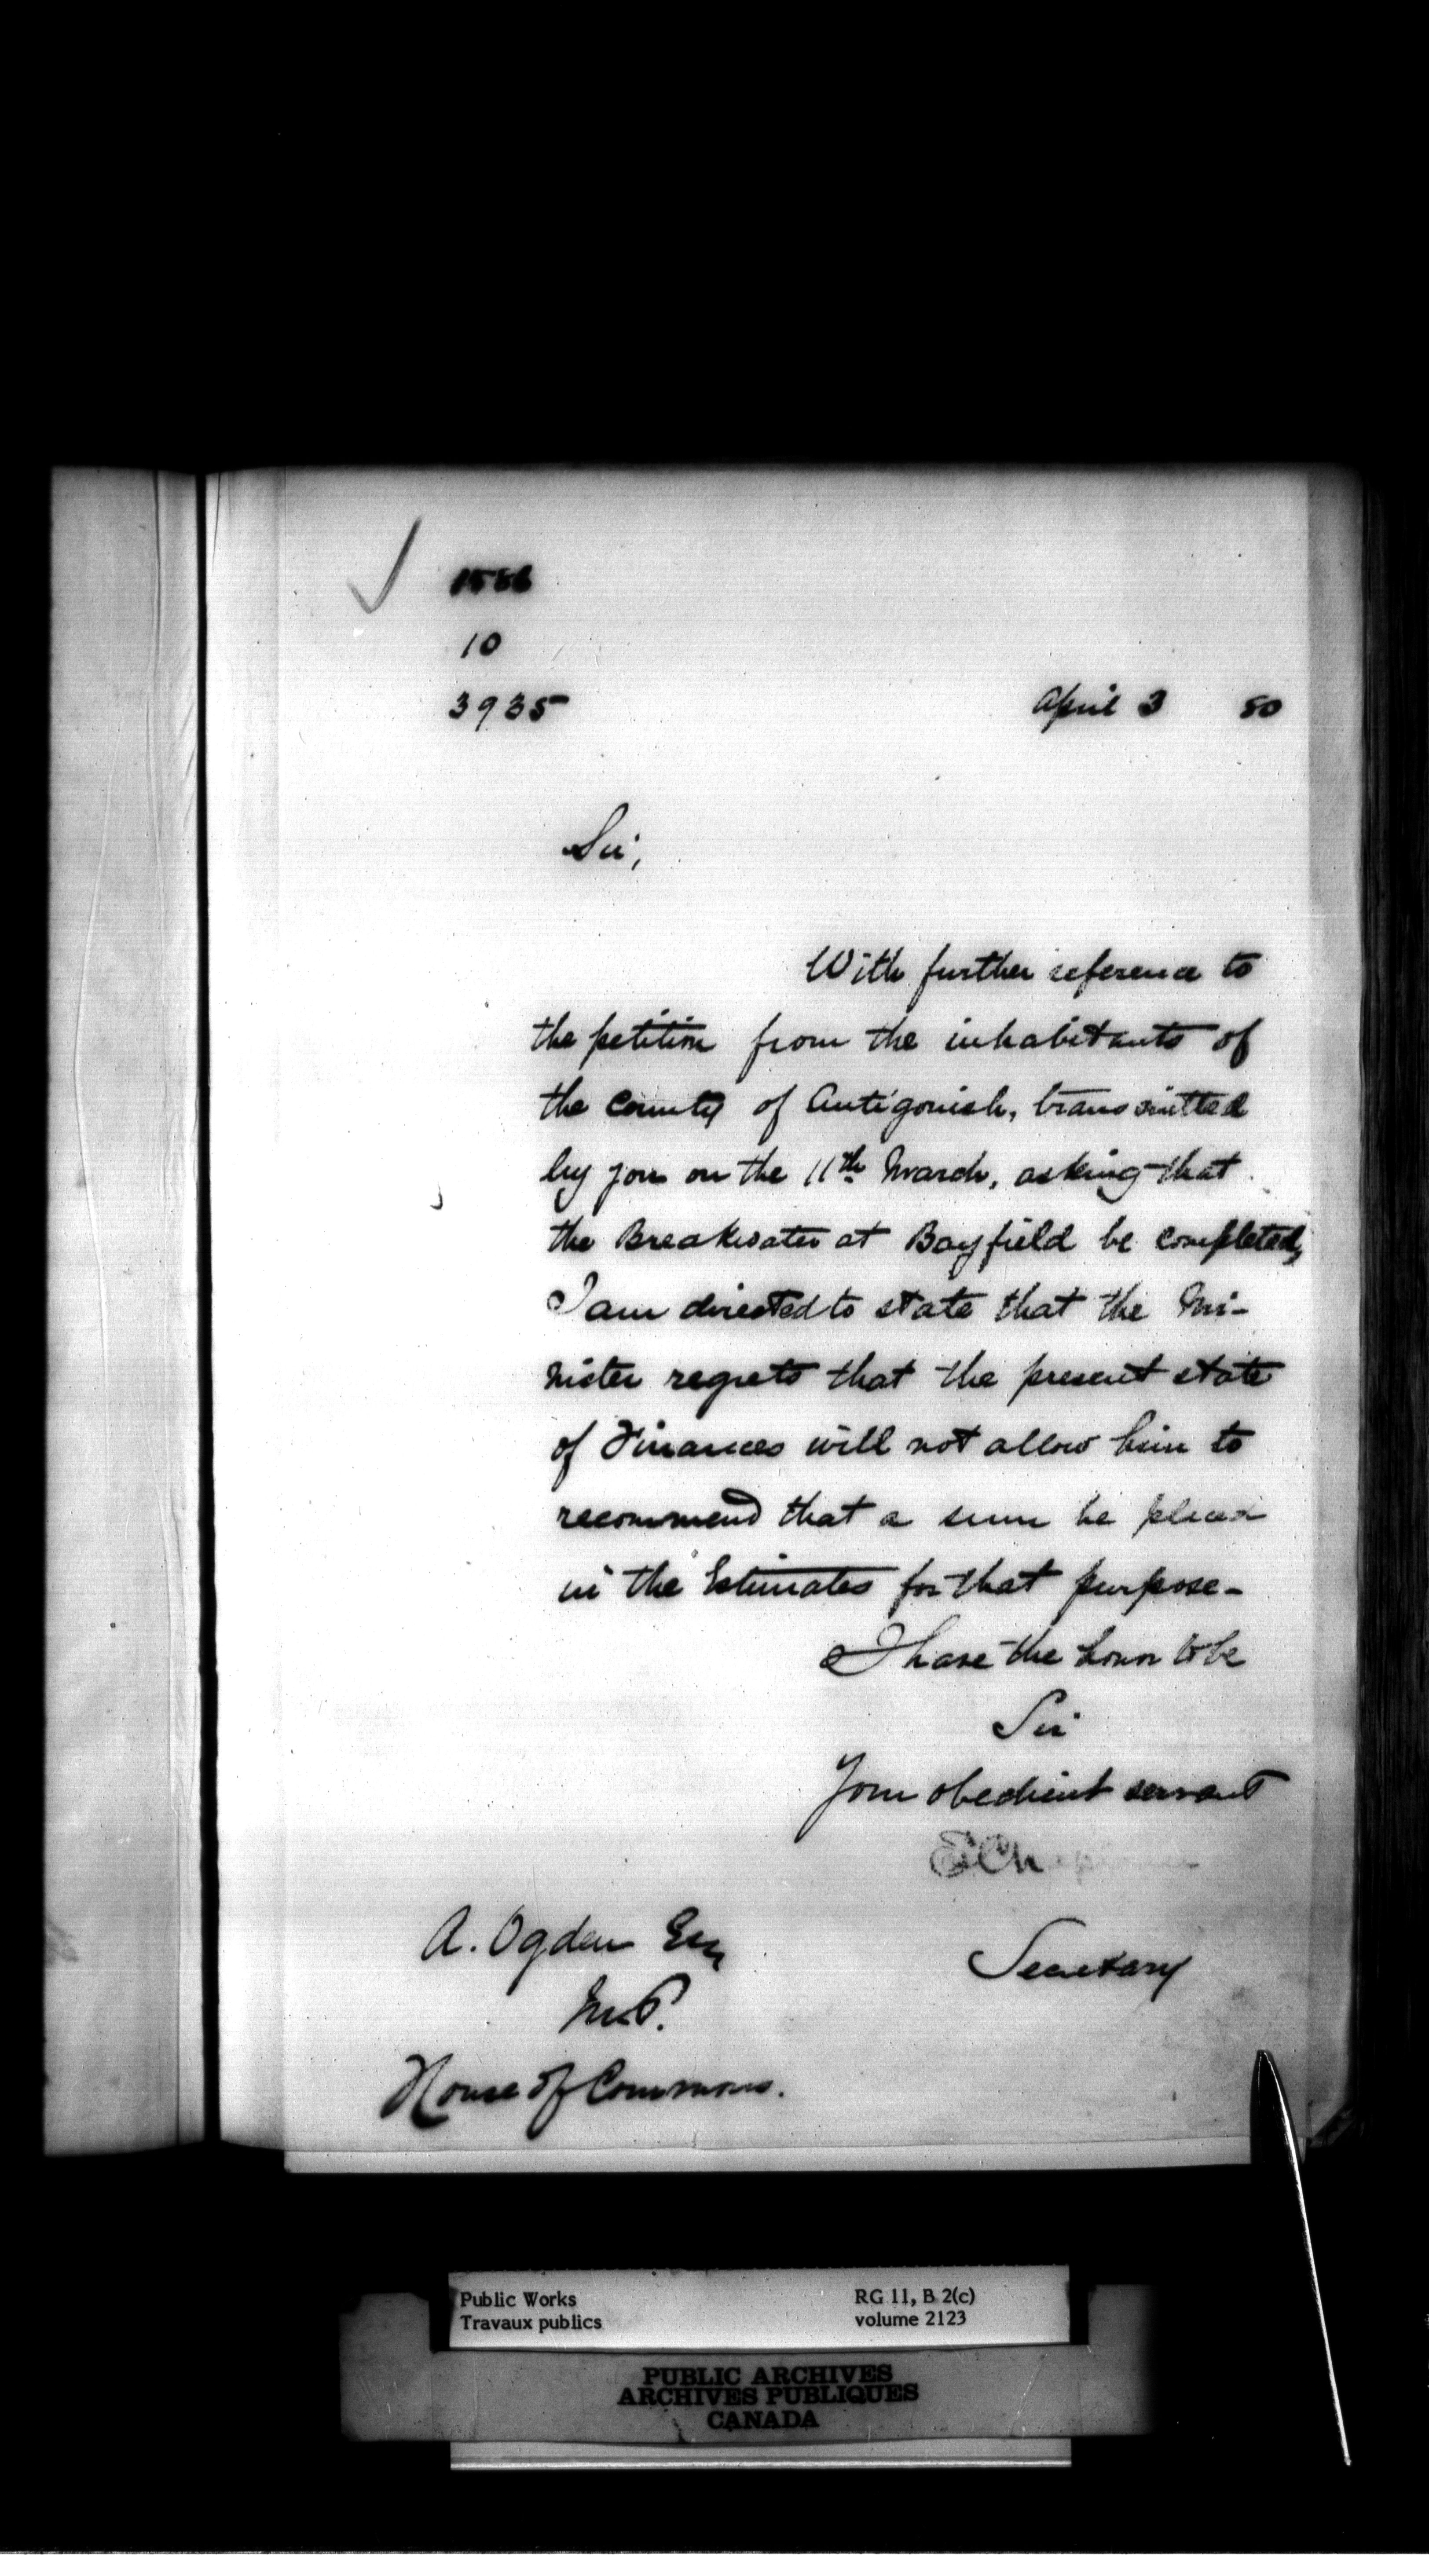 10
3935
April 3 80
Sir,
With further reference to
the petition from the inhabitants of
the County of Antigonish, transmitted
by you on the 11th March, asking that
the Breakwater at Bayfield be completed,
I am directed to state that the Mi-
nister regrets that the present state
of Finances will not allow him to
recommend that a sum be placed
in the Estimates for that purpose-
I have the honor to be
Sir
Your obedient servant
A. Ogden Esq
M.P.
House of Commons.
Secretary
Public Works
Travaux publics
RG 11, B 2(c)
volume 2123
PUBLIC ARCHIVES
ARCHIVES PUBLIQUES
CANADA